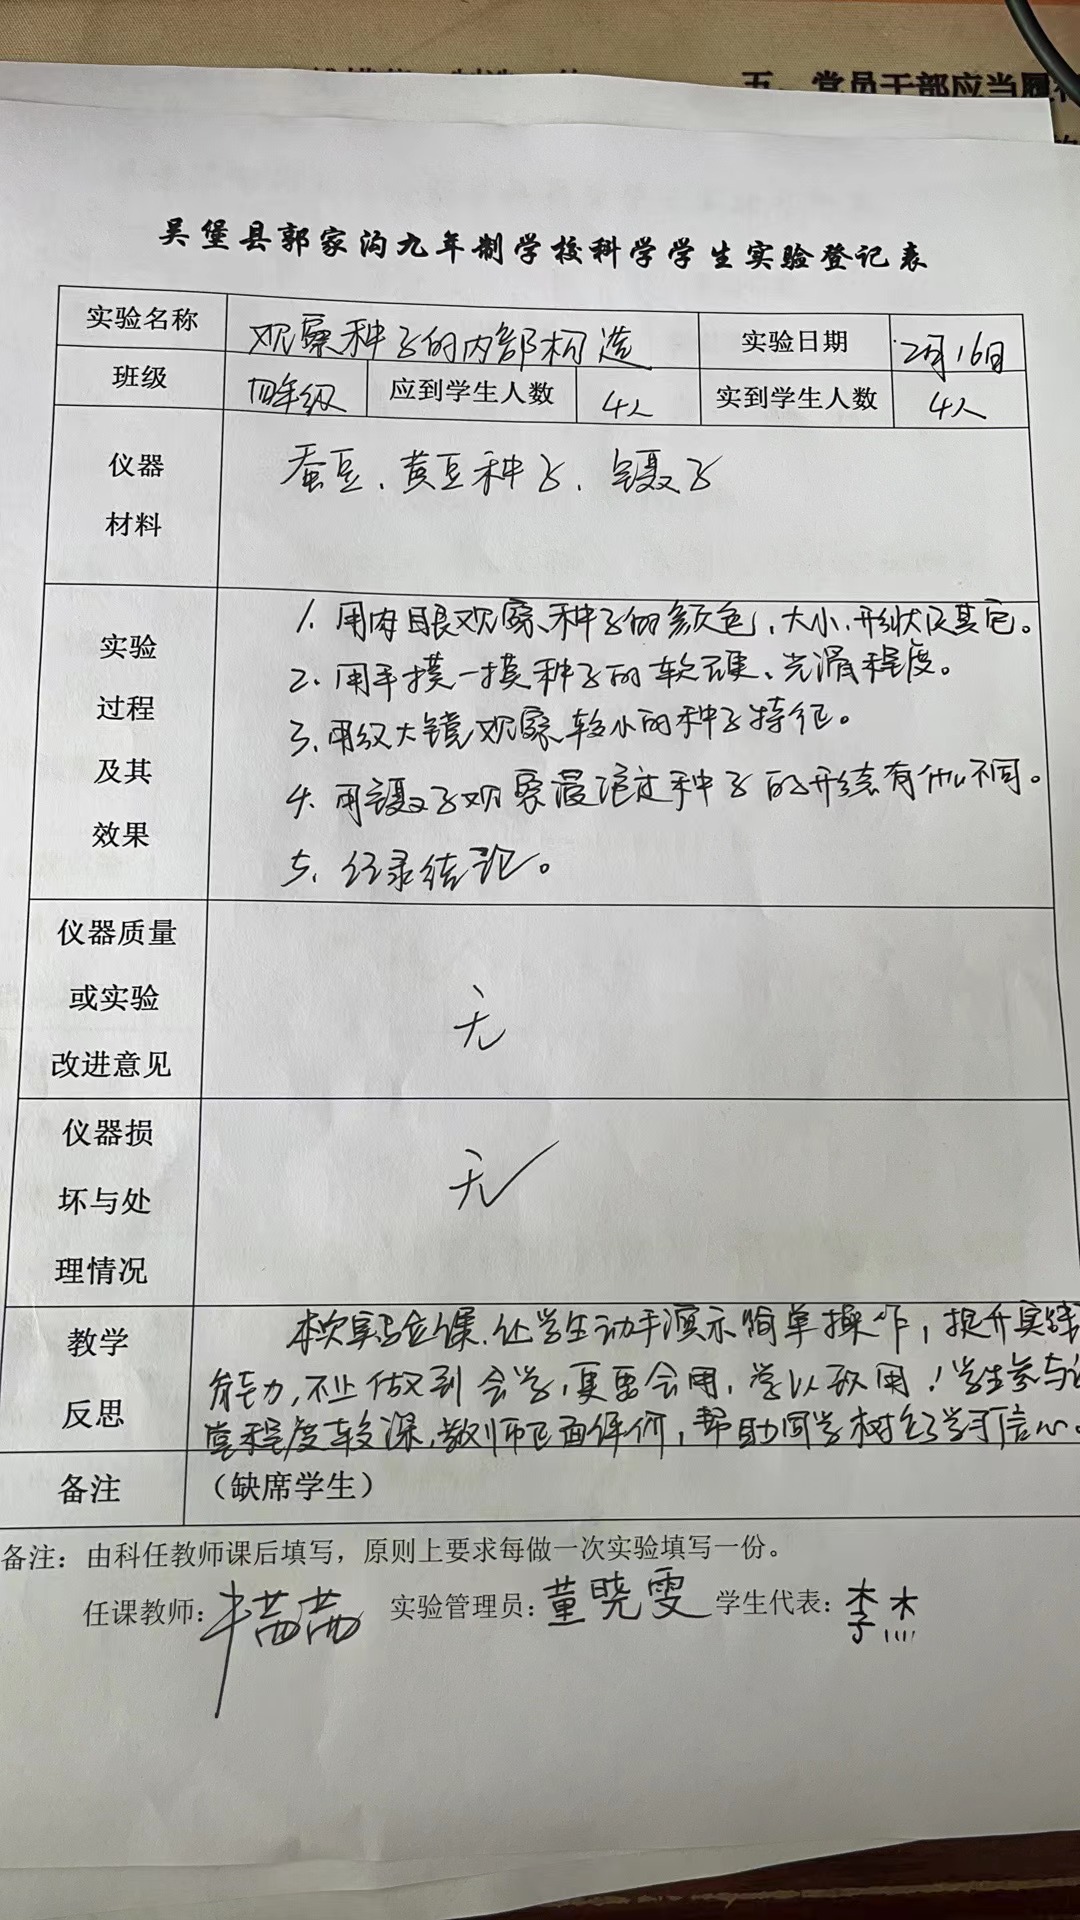 五、党员干部应当履行
吴堡县郭家沟九年制学校科学学生实验登记表
实验名称 观察种子的内部构造 实验日期 2月16日
班级 四年级 应到学生人数 4人 实到学生人数 4人
仪器 蚕豆、黄豆种子、镊子
材料
1. 用肉眼观察种子的颜色、大小、形状及其它。
实验
2. 用手摸一摸种子的软硬、光滑程度。
过程
3. 用放大镜观察较小的种子特征。
及其
4. 用镊子观察浸泡过种子的形态有什么不同。
效果
5. 记录结论。
仪器质量
或实验 无
改进意见
仪器损
坏与处 无
理情况
教学 本次实验课,让学生动手演示简单操作,提升实践
能力,不止做到会学,更要会用,学以致用!学生参与
反思 堂程度较深,教师正面评价,帮助同学树立学习信心。
备注 (缺席学生)
备注：由科任教师课后填写，原则上要求每做一次实验填写一份。
任课教师: 实验管理员: 董晓雯 学生代表: 李杰